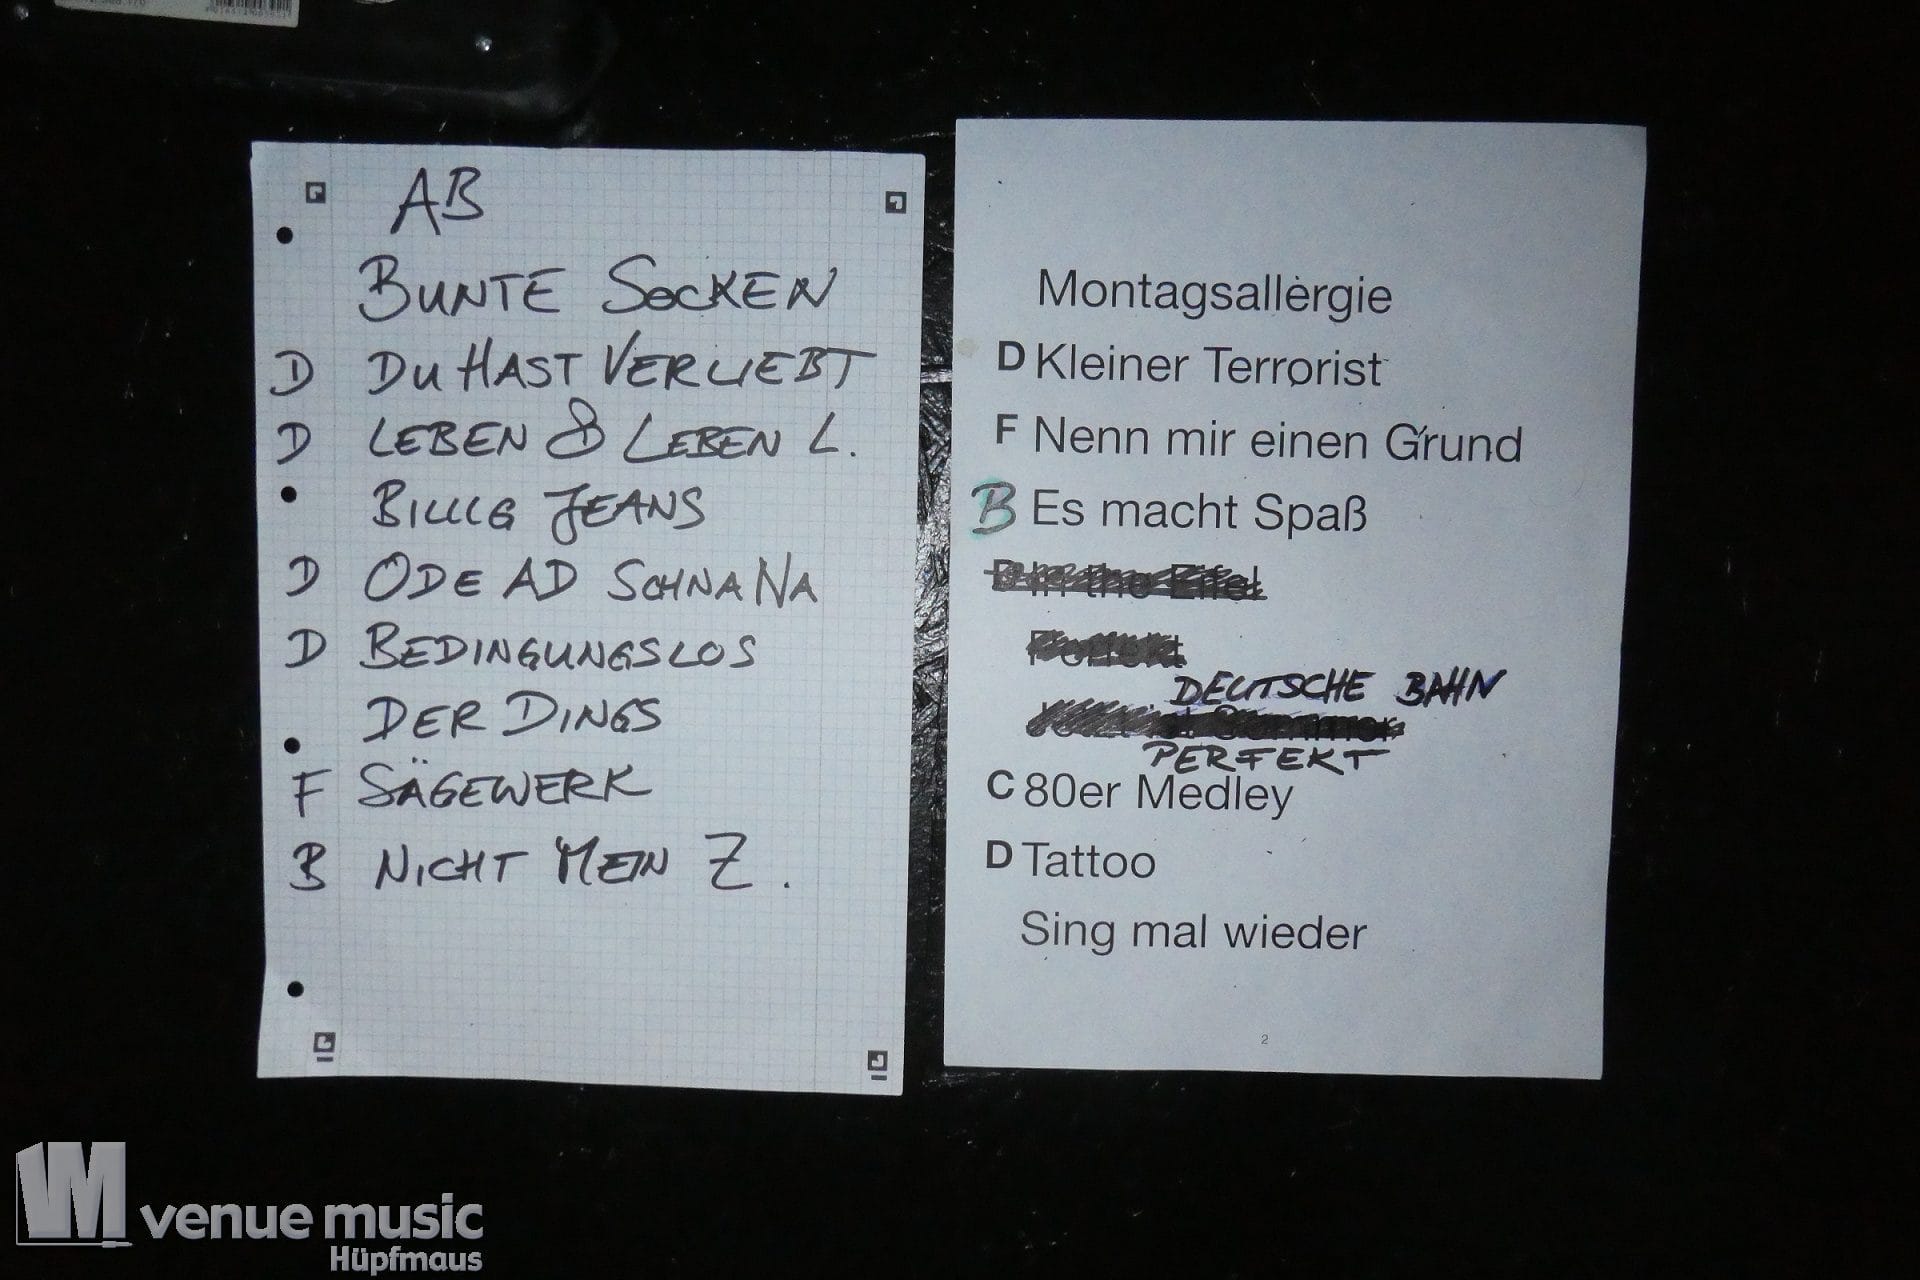 AB
BUNTE SOCKEN
D DU HAST VERLIEBT
D LEBEN & LEBEN L.
BILLIG JEANS
D ODE AD SCHNANA
D BEDINGUNGSLOS
DER DINGS
F SÄGEWERK
B NICHT MEIN Z.
Montagsallergie
D Kleiner Terrorist
F Nenn mir einen Grund
B Es macht Spaß
D In the Eifel
DEUTSCHE BAHN
PERFEKT
C 80er Medley
D Tattoo
Sing mal wieder
2
VM venue music
Hüpfmaus